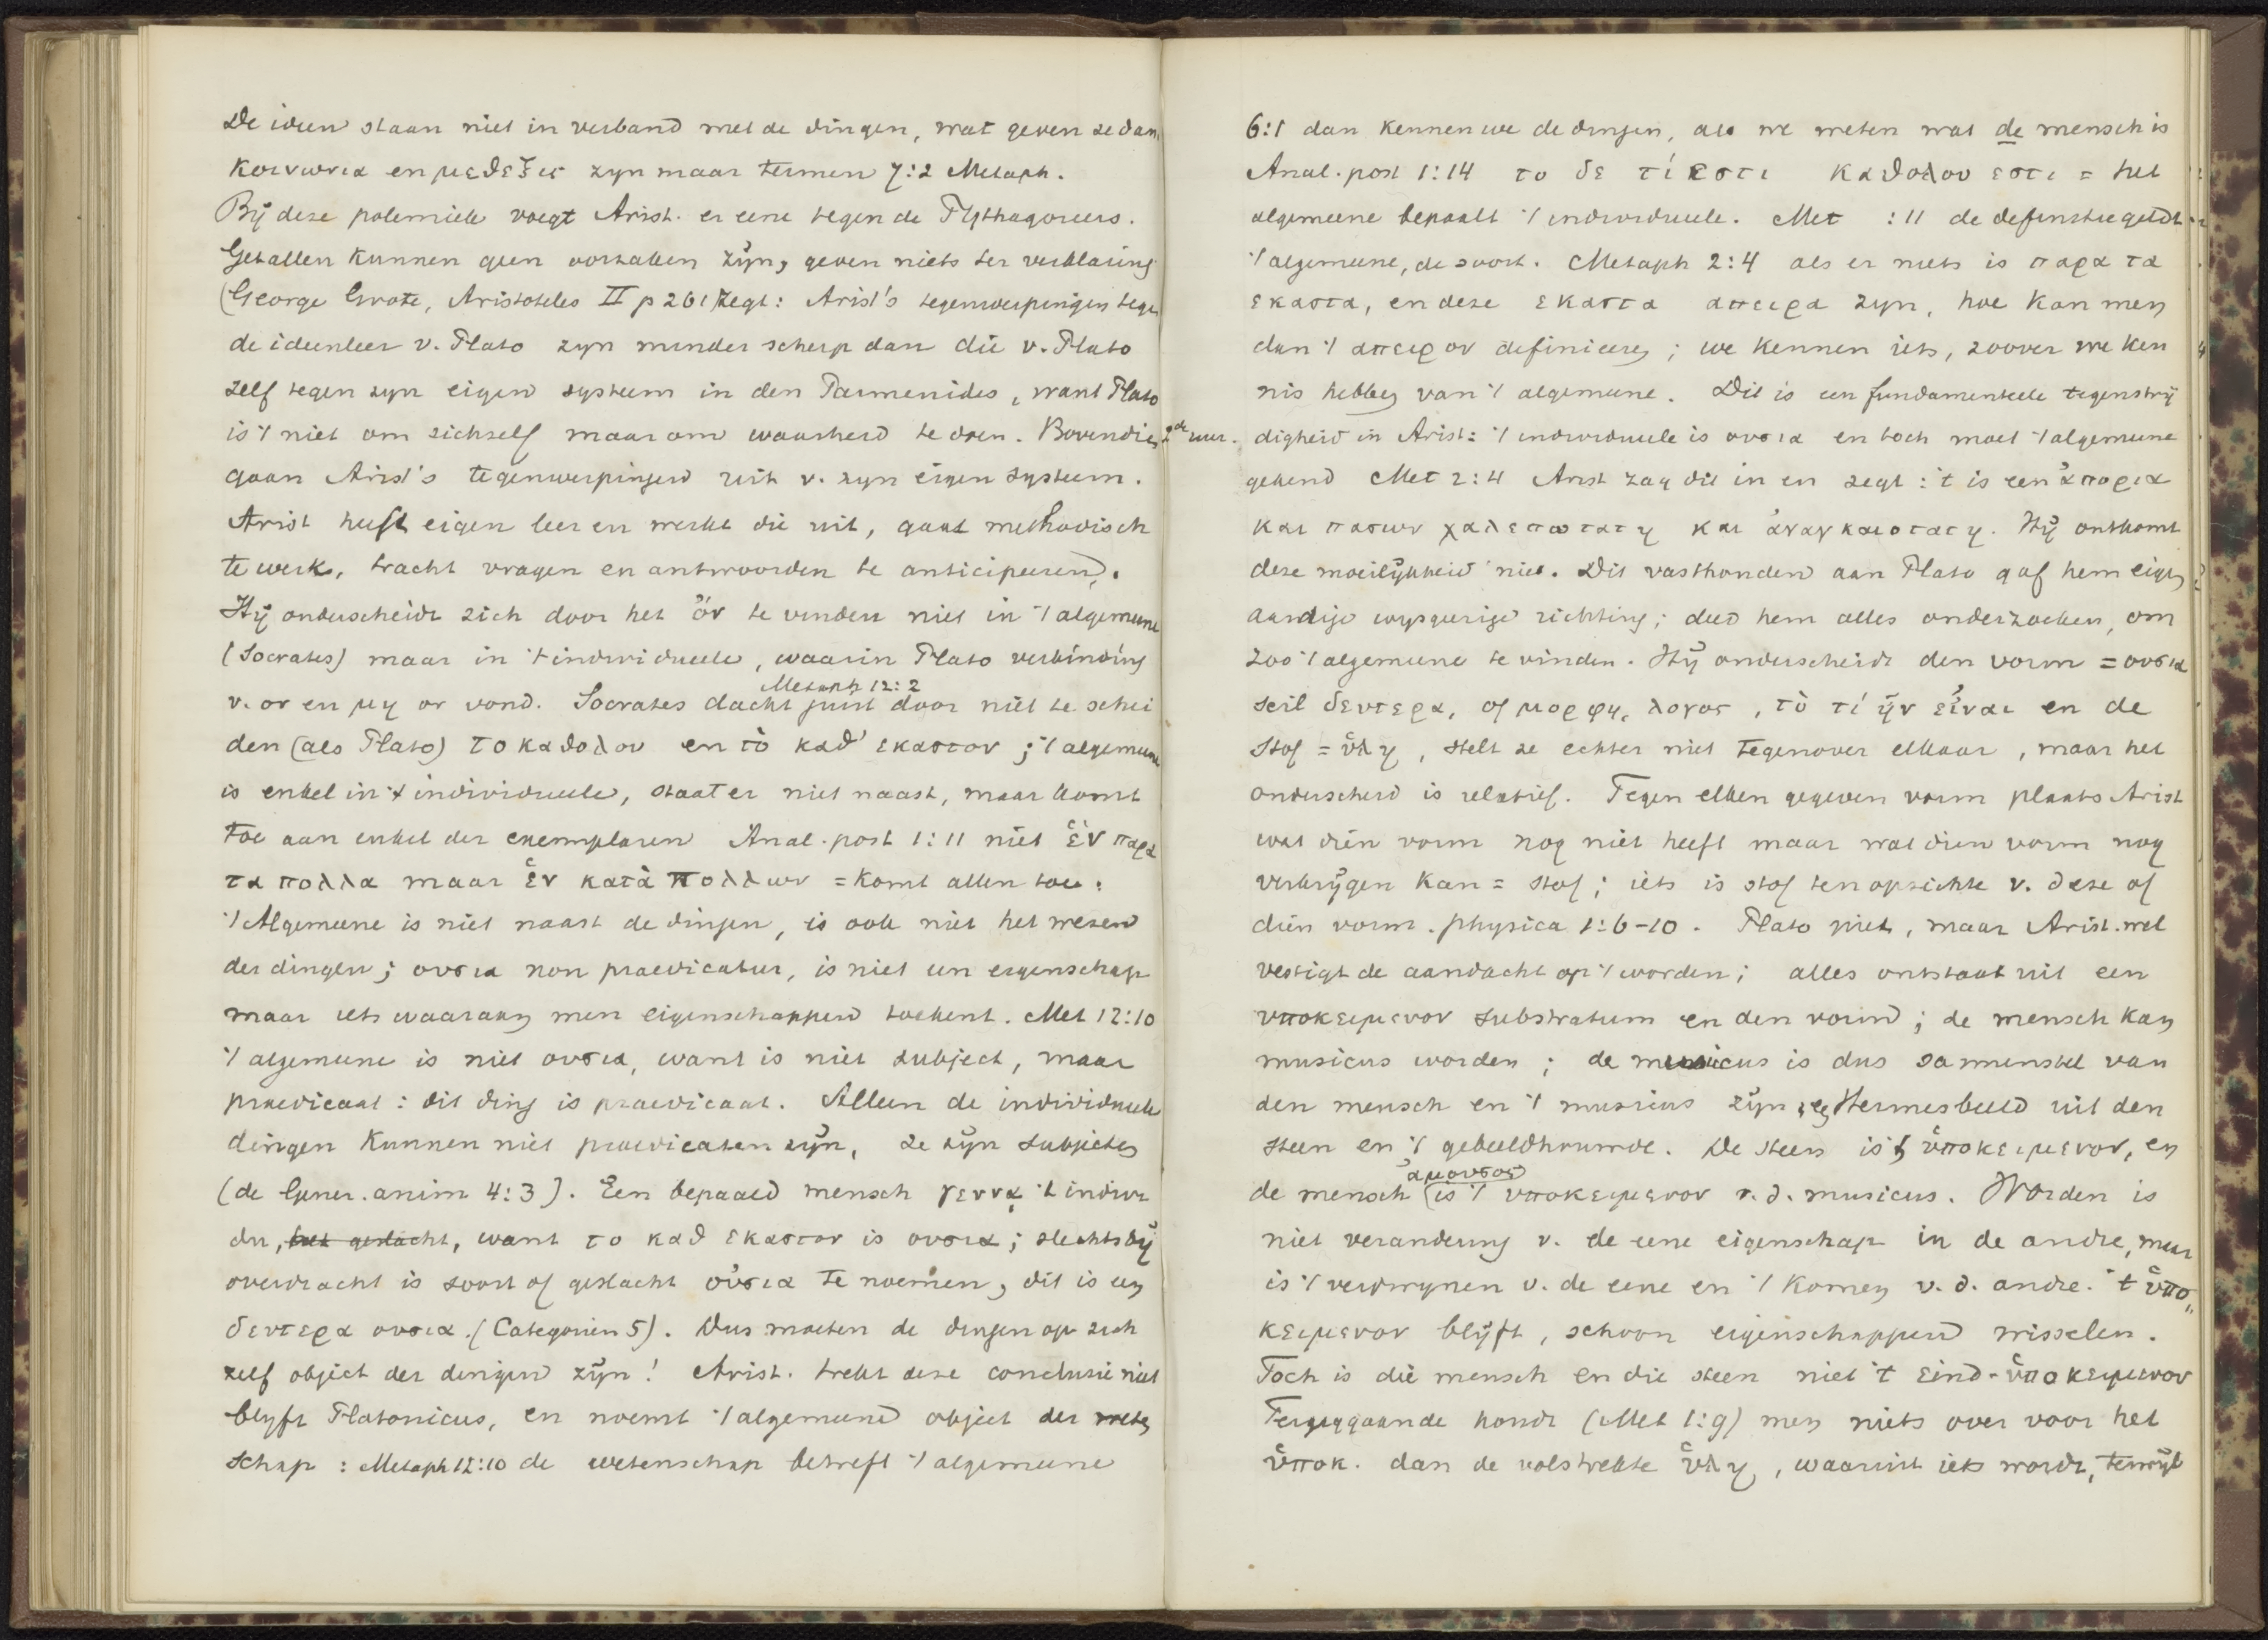 De ideen staan niet in verband met de dingen, wat geven ze dan
κοινωνια en μεθεξις zyn maar termen 7:2 Metaph.
Bij deze polemiek voegt Arist. er eene tegen de Pythagoreers.
Getallen kunnen geen oorzaken zijn, geven niets ter verklaring
(George Grote, Aristoteles II p 261) zegt: Arist's tegenwerpingen tegen
de ideenleer v. Plato zyn minder scherp dan die v. Plato
zelf tegen zyn eigen systeem in den Parmenides, want Plato
is 't niet om zichzelf maar om waarheid te doen. Bovendien
gaan Arist's tegenwerpingen uit v. zyn eigen systeem.
Arist heeft eigen leer en werkt die uit, gaat methodisch
te werk, tracht vragen en antwoorden te anticipeeren.
Hij onderscheidt zich door het ὄν te vinden niet in 't algemeene
(Socrates) maar in 't individueele, waarin Plato verbinding
Metaph 12:2
v. ον en μη ον vond. Socrates dacht juist door niet te schei
den (als Plato) το καθολον en τὸ καθ' εκαστον; 't algemeene
is enkel in 't individueele, staat er niet naast, maar komt
toe aan enkel der exemplaren Anal. post 1:11 niet ἑν παρα
τα πολλα maar ἑν κατὰ πολλων = komt allen toe.
't Algemeene is niet naast de dingen, is ook niet het wezen
der dingen; ουσια non praedicatur, is niet een eigenschap
maar iets waaraan men eigenschappen toekent. Met 12:10
't algemeene is niet ουσια, want is niet subject, maar
praedicaat: dit ding is praedicaat. Alleen de individueele
dingen kunnen niet praedicaten zijn, ze zijn subjecten
(de Gener. anim 4:3). Een bepaald mensch γεννᾳ 't indivi
du, het geslacht, want το καθ εκαστον is ουσια; slechts bij
overdracht is soort of geslacht οὐσια te noemen, dit is een
δευτερα ουσια. (Categorien 5). Dus moeten de dingen op zich
zelf object der dingen zijn! Arist. trekt deze conclusie niet
blyft Platonicus, en noemt 't algemeene object der weten
schap : Metaph 12:10 de wetenschap betreft 't algemeene
2de uur.
6:1 dan kennen we de dingen, als we weten wat de mensch is
Anal. post 1:14 το δε τί εστι καθολου εστι = het
algemeene bepaalt 't individueele. Met :11 de definitie geldt
't algemeene, de soort. Metaph 2:4 als er niets is παρα τα
εκαστα, en deze εκαστα απειρα zyn, hoe kan men
dan 't απειρον definieeren; we kennen iets, zoover we ken
nis hebben van 't algemeene. Dit is een fundamenteele tegenstrij
digheid in Arist: 't individueele is ουσια en toch moet 't algemeene
gekend Met 2:4 Arist zag dit in en zegt: 't is een ἀπορια
και πασων χαλεπωτατη και ἀναγκαιοτατη. Hij ontkomt
deze moeilijkheid niet. Dit vasthouden aan Plato gaf hem eigen
aardige wysgeerige richting; deed hem alles onderzoeken, om
zoo 't algemeene te vinden. Hij onderscheidt den vorm = ουσια
scil δευτερα, of μορφη, λογος, τὸ τί ἦν εἶναι en de
stof = ὕλη, stelt ze echter niet tegenover elkaar, maar het
onderscheid is relatief. Tegen elken gegeven vorm plaats Arist
wat dien vorm nog niet heeft maar wat dien vorm nog
verkrijgen kan = stof; iets is stof ten opzichte v. deze of
dien vorm. physica 1:6-10. Plato niet, maar Arist. wel
vestigt de aandacht op 't worden; alles ontstaat uit een
υποκειμενον substratum en den vorm; de mensch kan
musicus worden; de musicus is dus samenstel van
den mensch en 't musicus zijn, een Hermesbeeld uit den
steen en 't gebeeldhouwde. De steen is 't ὑποκειμενον, en
αμουσος
de mensch is 't υποκειμενον v. d. musicus. Worden is
niet verandering v. de eene eigenschap in de andre, maar
is 't verdwynen v. de eene en 't komen v. d. andre. 't ὑπο
κειμενον blijft, schoon eigenschappen wisselen.
Toch is die mensch en die steen niet 't eind-ὑποκειμενον
Teruggaande houdt (Met 1:9) men niets over voor het
ὑποκ. dan de volstrekte ὕλη, waaruit iets wordt, terwijl